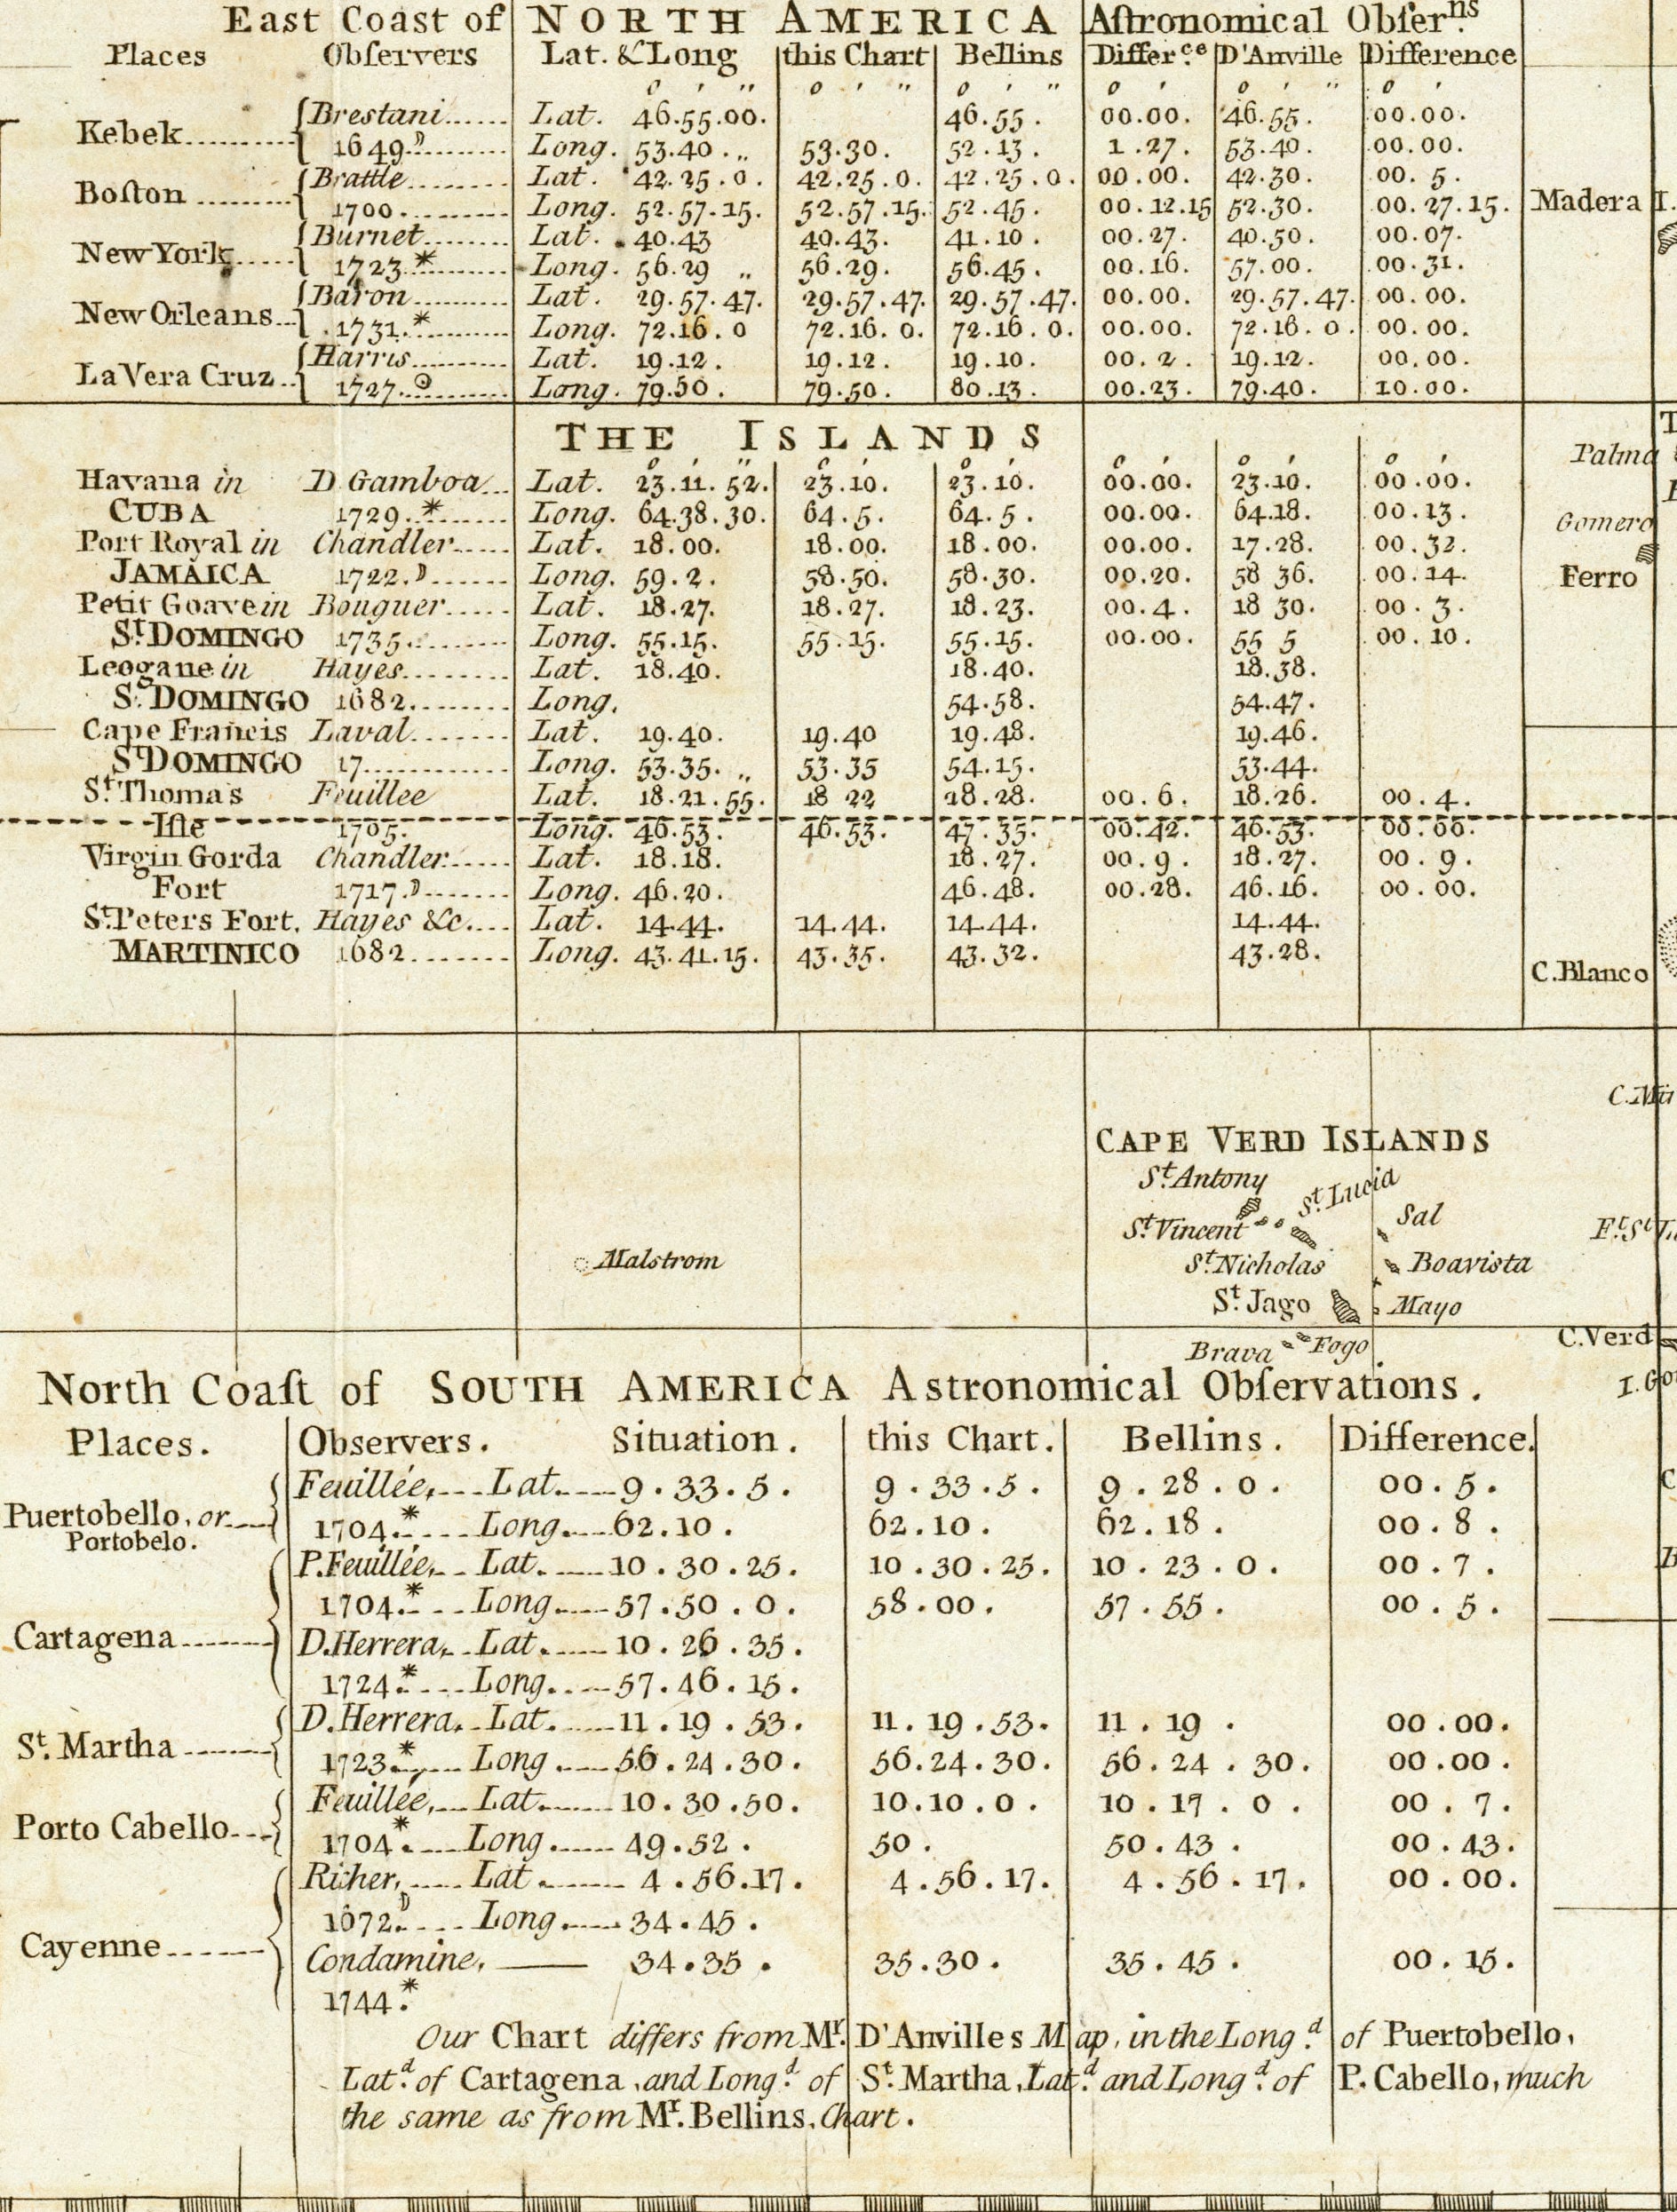 East Coast of NORTH AMERICA Aſtronomical Obſer.ns
Places Obſervers Lat. & Long this Chart Bellins Differ.ce D'Anville Difference
° ' " ° ' " ° ' " ° ' ° ' " ° '
Kebek Brestani Lat. 46.55.00. 46.55. 00.00. 46.55. 00.00.
1649.D Long. 53.40. „ 53.30. 52.13. 1.27. 53.40. 00.00.
Boſton Brattle Lat. 42.25.0. 42.25.0. 42.25.0. 00.00. 42.30. 00. 5.
1700. Long. 52.57.15. 52.57.15. 52.45. 00.12.15 52.30. 00.27.15. Madera I.
New York Burnet Lat. 40.43 40.43. 41.10. 00.27. 40.50. 00.07.
1723.* Long. 56.29 „ 56.29. 56.45. 00.16. 57.00. 00.31.
New Orleans Baron Lat. 29.57.47. 29.57.47. 29.57.47. 00.00. 29.57.47. 00.00.
1731.* Long. 72.16.0 72.16.0. 72.16.0. 00.00. 72.16.0. 00.00.
La Vera Cruz Harris Lat. 19.12. 19.12. 19.10. 00.2. 19.12. 00.00.
1727.☉ Long. 79.50. 79.50. 80.13. 00.23. 79.40. 10.00.
THE ISLANDS
° ' " ° ' ° ' ° ' ° ' ° '
Palma
Havana in D. Gamboa Lat. 23.11.52. 23.10. 23.10. 00.00. 23.10. 00.00.
CUBA 1729.* Long. 64.38.30. 64.5. 64.5. 00.00. 64.18. 00.13. Gomero
Port Royal in Chandler Lat. 18.00. 18.00. 18.00. 00.00. 17.28. 00.32.
JAMAICA 1722.D Long. 59.2. 58.50. 58.30. 00.20. 58 36. 00.14. Ferro
Petit Goave in Bouguer Lat. 18.27. 18.27. 18.23. 00.4. 18 30. 00.3.
St. DOMINGO 1735. Long. 55.15. 55.15. 55.15. 00.00. 55 5 00.10.
Leogane in Hayes Lat. 18.40. 18.40. 18.38.
St. DOMINGO 1682. Long. 54.58. 54.47.
Cape Francis Laval Lat. 19.40. 19.40 19.48. 19.46.
St DOMINGO 17 Long. 53.35. „ 53.35 54.15. 53.44.
St. Thomas Feuillee Lat. 18.21.55. 18 22 18.28. 00.6. 18.26. 00.4.
Iſle 1705. Long. 46.53. 46.53. 47.35. 00.42. 46.53. 00.00.
Virgin Gorda Chandler Lat. 18.18. 18.27. 00.9. 18.27. 00.9.
Fort 1717.D Long. 46.20. 46.48. 00.28. 46.16. 00.00.
St. Peters Fort, Hayes &c. Lat. 14.44. 14.44. 14.44. 14.44.
MARTINICO 1682 Long. 43.41.15. 43.35. 43.32. 43.28.
C. Blanco
CAPE VERD ISLANDS
St. Antony
St. Lucia
St. Vincent
Sal
Malstrom
St. Nicholas
Boavista
St. Jago
Mayo
Brava
Fogo
C. Verd
North Coaſt of SOUTH AMERICA Astronomical Obſervations.
Places. Observers. Situation. this Chart. Bellins. Difference.
Puertobello, or Feuillée, Lat. 9.33.5. 9.33.5. 9.28.0. 00.5.
Portobelo. 1704.* Long. 62.10. 62.10. 62.18. 00.8.
P. Feuillée, Lat. 10.30.25. 10.30.25. 10.23.0. 00.7.
1704.* Long. 57.50.0. 58.00. 57.55. 00.5.
Cartagena D. Herrera, Lat. 10.26.35.
1724.* Long. 57.46.15.
St. Martha D. Herrera, Lat. 11.19.53. 11.19.53. 11.19. 00.00.
1723.* Long 56.24.30. 56.24.30. 56.24.30. 00.00.
Porto Cabello Feuillée, Lat. 10.30.50. 10.10.0. 10.17.0. 00.7.
1704.* Long. 49.52. 50. 50.43. 00.43.
Richer, Lat 4.56.17. 4.56.17. 4.56.17. 00.00.
1672.D Long. 34.45.
Cayenne Condamine, 34.35. 35.30. 35.45. 00.15.
1744.*
Our Chart differs from Mr. D'Anvilles Map, in the Long.d of Puertobello,
Lat.d of Cartagena, and Long.d of St. Martha, Lat.d and Long.d of P. Cabello, much
the same as from Mr. Bellins, Chart.